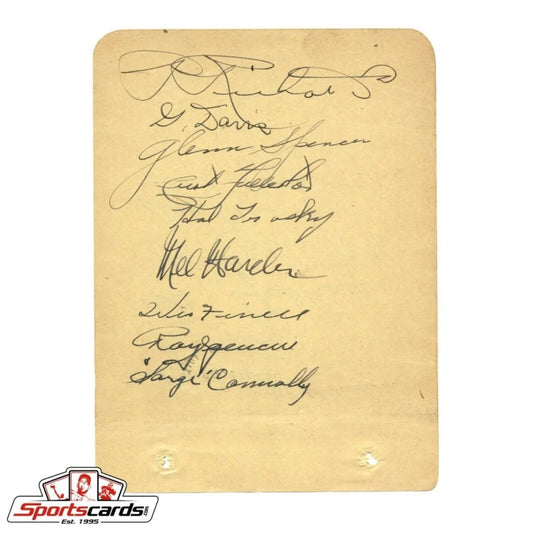 P. Richards
G. Davis
Glenn Spencer
Hal Trosky
Mel Harder
Roy Spencer
"Sarge" Connally
Sportscards.com
Est. 1995